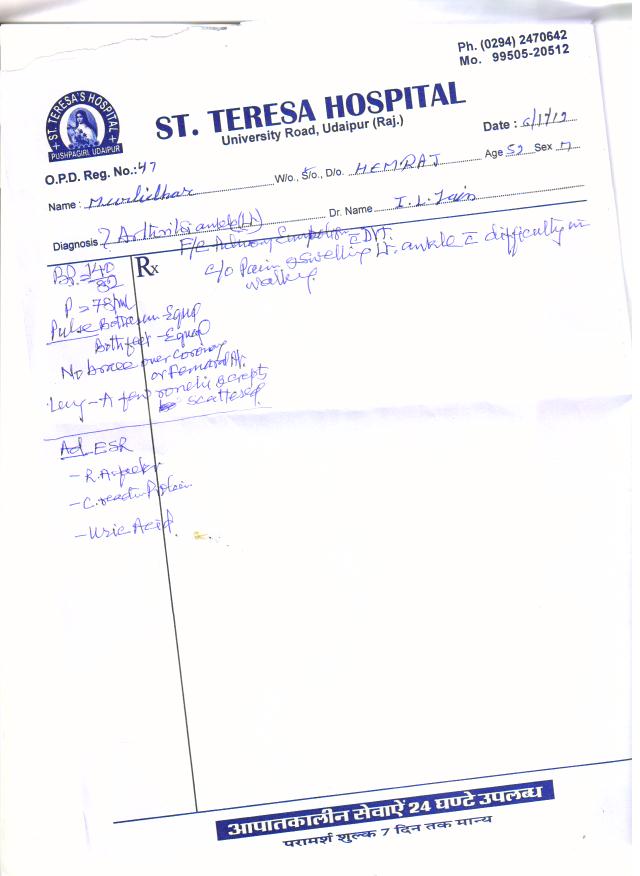 Ph. (0294) 2470642
Mo. 99505-20512
ST. TERESA'S HOSPITAL
PUSHPAGIRI, UDAIPUR
ST. TERESA HOSPITAL
University Road, Udaipur (Raj.)
Date :
O.P.D. Reg. No.: 47
W/o., S/o., D/o. HEMRAJ Age 52 Sex M
Name : Murlidhar
Dr. Name I. L. Jain
Diagnosis ? Arthritis ankle (Lt)
Rx
F/c Pulmonary Embolism c DVT.
c/o Pain & Swelling Lt. ankle c difficulty in
walking.
BP. 140
82
P = 78/M
Pulse Both arm - Equal
Both feet - Equal
No bruee over Coronary
or Femoral Ar.
Lung - A few ronchi & crepts
scattered.
Ad. ESR
- R.A. factor
- C. reactive Protein.
- Uric Acid.
आपातकालीन सेवाऐं 24 घण्टे उपलब्ध
परामर्श शुल्क 7 दिन तक मान्य